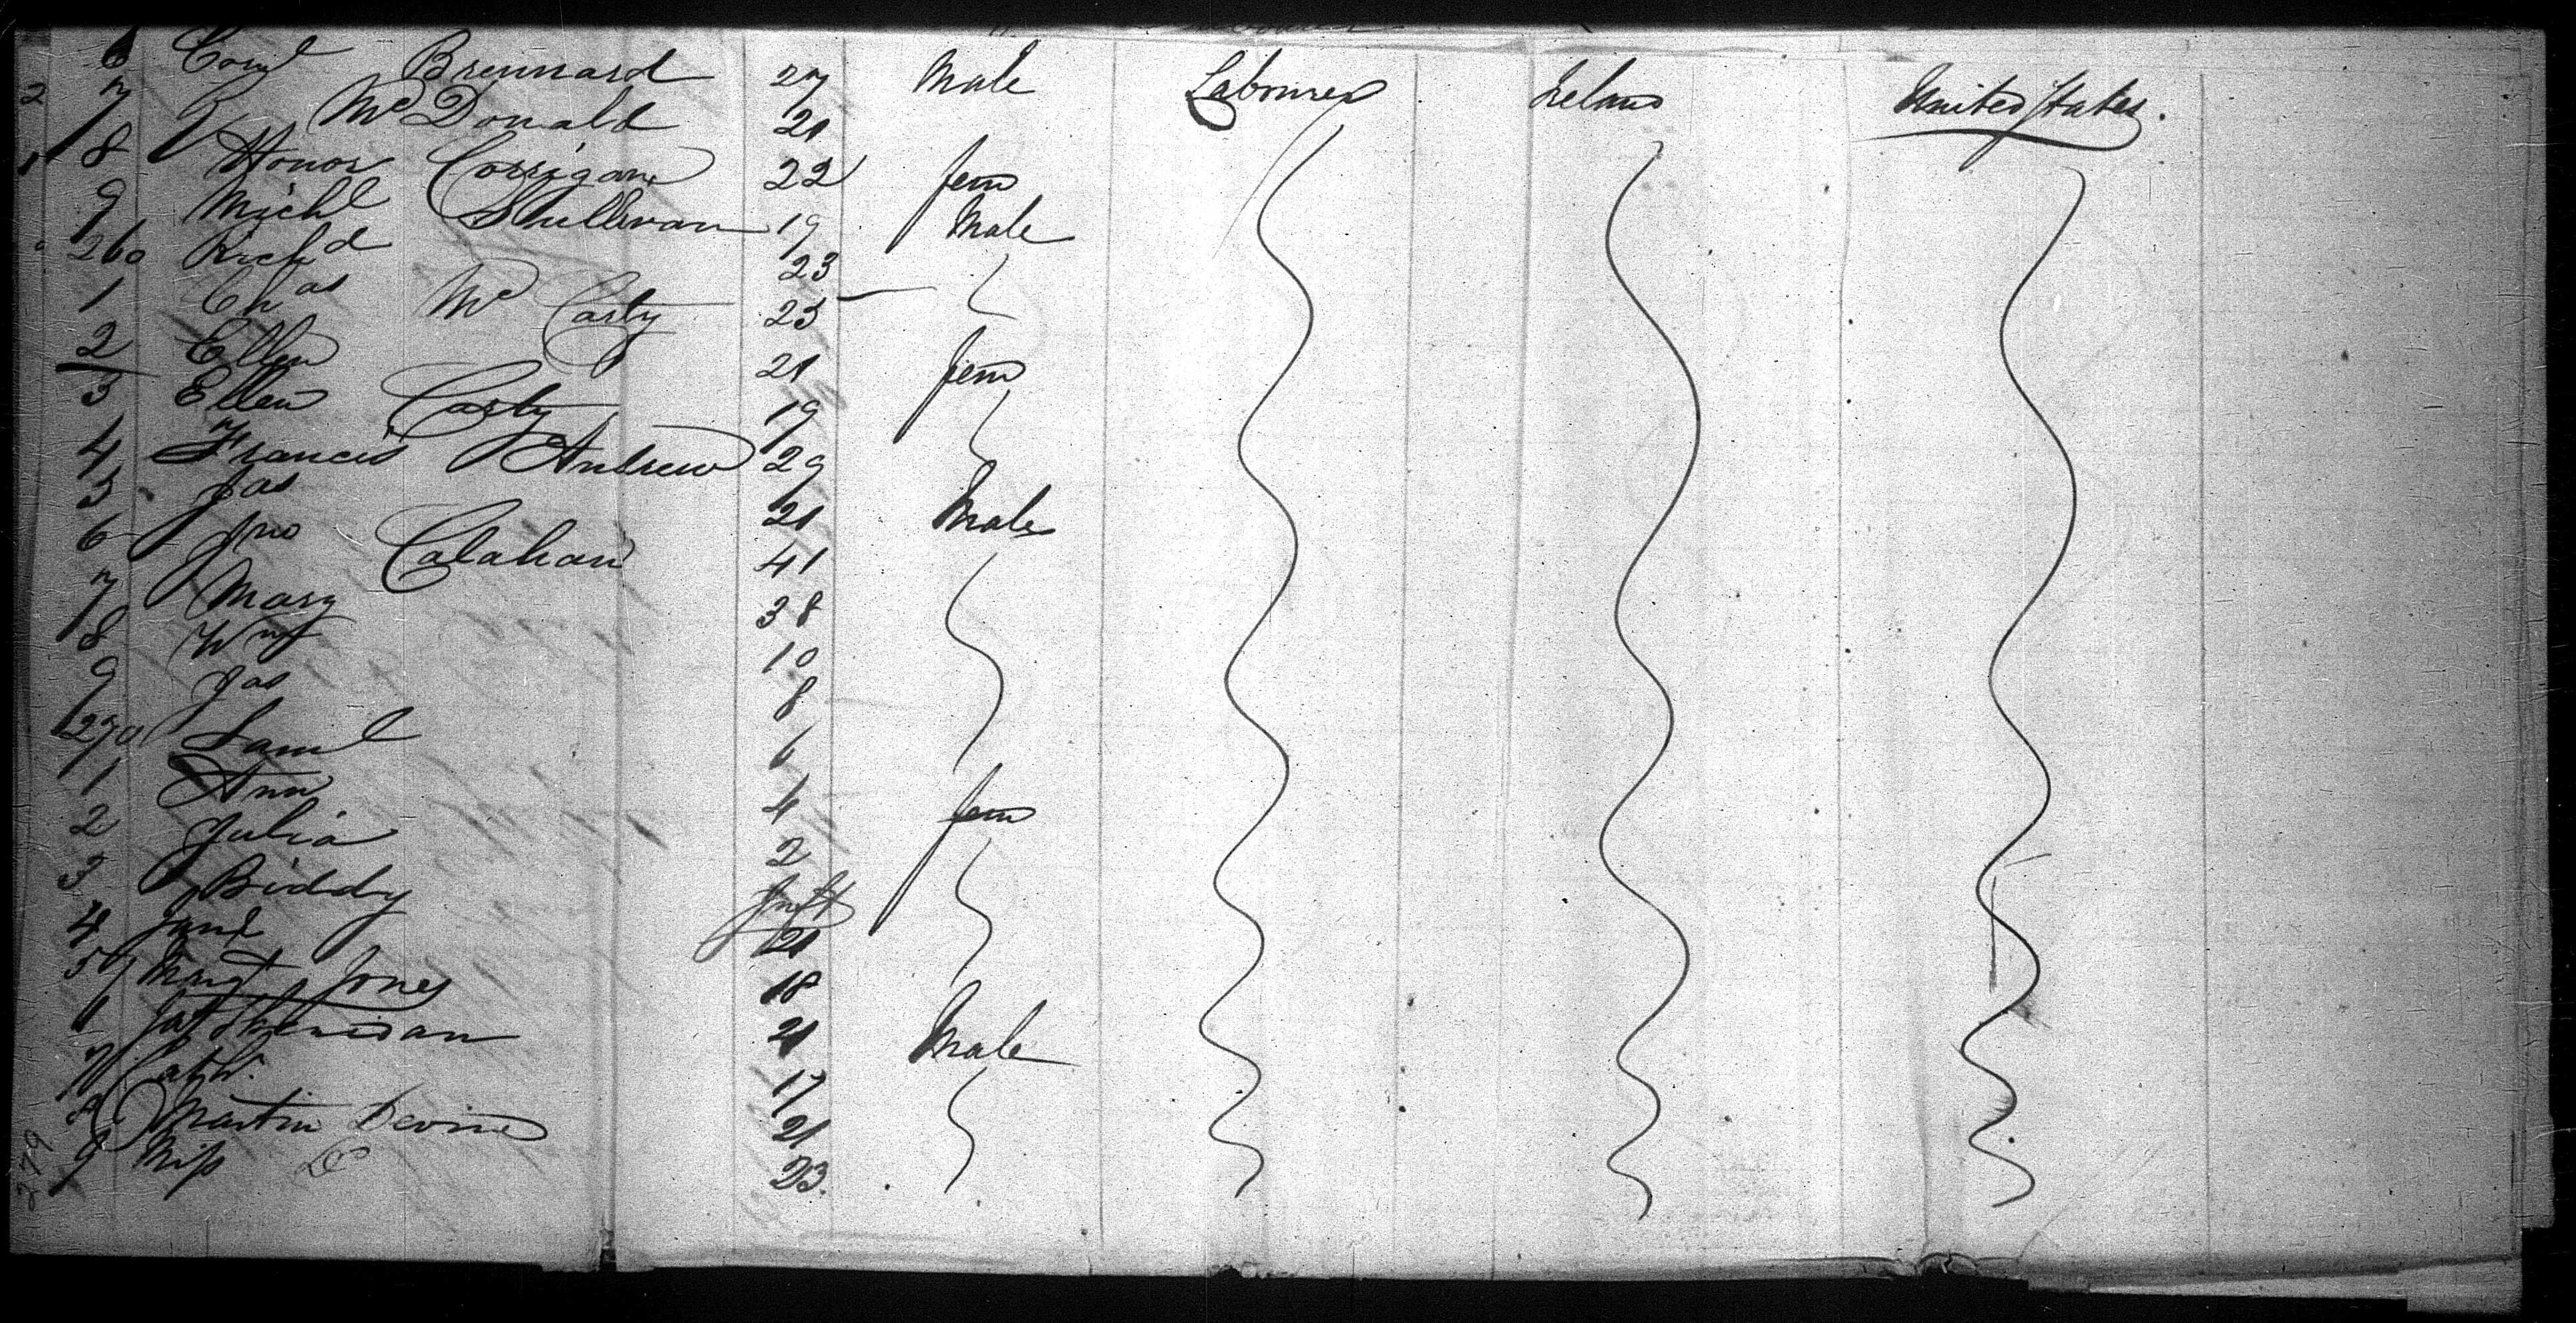 6 Corn^l Brennard 27 Male Labourer Ireland United States.
2 7 J McDonald 21
1 8 Honor Corrigan 22 fem
9 Mich^l Shullivan 19 Male
260 Rich^d 23
1 Ch^as McCarty 25
2 Ellen 21 fem
3 Ellen Carty 19
4 Francis Andrew 29
5 Jas 21 Male
6 Jno Calahan 41
7 Mary 38
8 Wm 10
9 Jas 8
270 Saml 6
1 Ann 4 fem
2 Julia 2
3 Biddy Inft
4 Jane 21
5 Margt Jones 18
Jas Sheridan 21 Male
7 Cath. 17
8 Martin Devine 21
9 Miss Do 23.
279